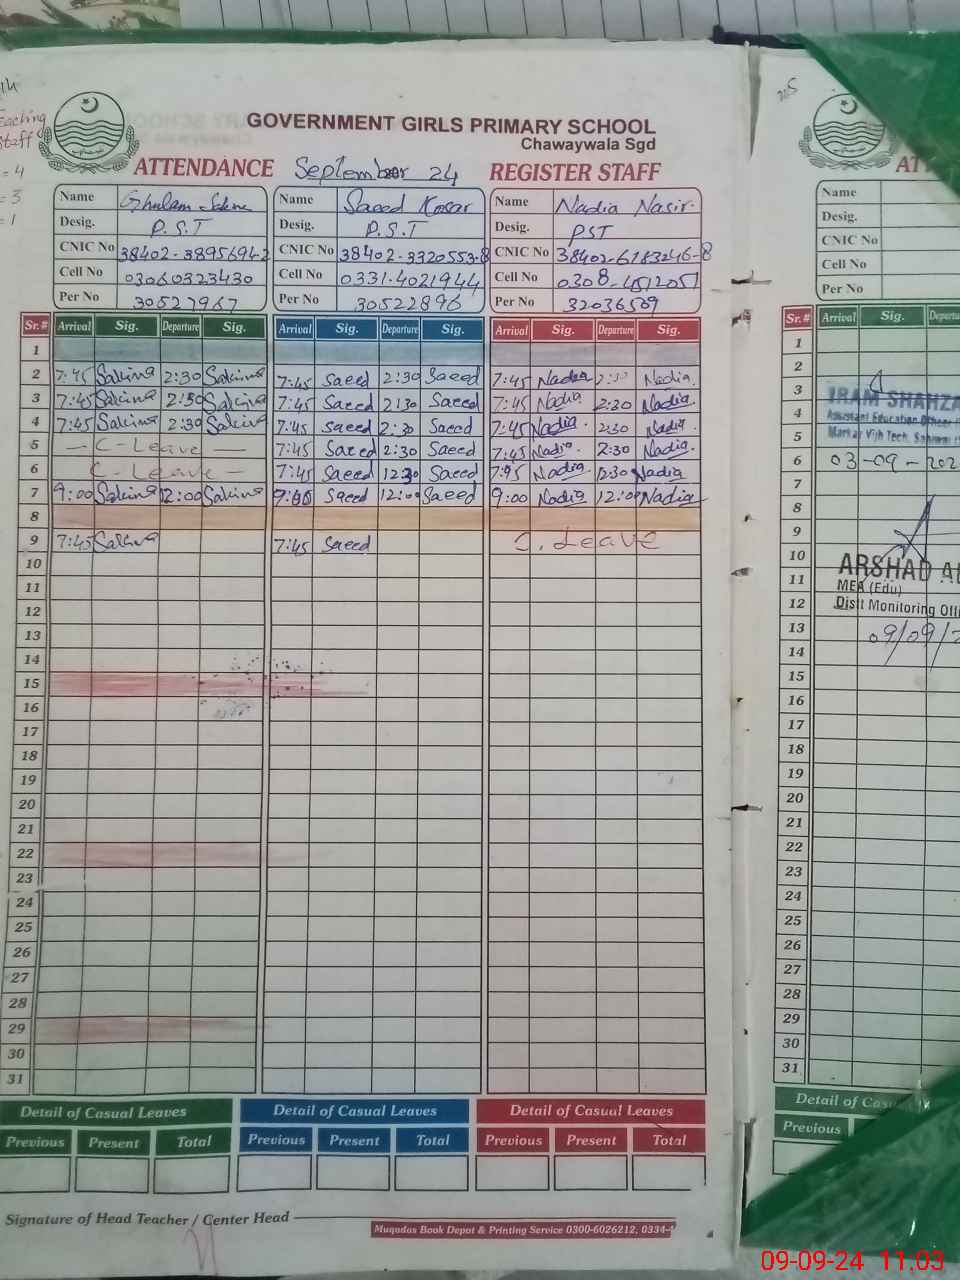 GOVERNMENT GIRLS PRIMARY SCHOOL
Chawaywala Sgd
ATTENDANCE September 24 REGISTER STAFF
Teaching
Staff
= 4
= 3
= 1
Name Ghulam Name Saeed Kosar Name Nadia Nasir.
Desig. P.S.T Desig. P.S.T Desig. PST
CNIC No 38402-3895694-2 CNIC No 38402-3320553-8 CNIC No 38402-6163246-8
Cell No 03060323430 Cell No 0331-4021944 Cell No 0308-4512051
Per No 30527967 Per No 30522896 Per No 32036509
Sr.# Arrival Sig. Departure Sig. Arrival Sig. Departure Sig. Arrival Sig. Departure Sig.
1
2 7:45 Sakina 2:30 Sakina 7:45 Saeed 2:30 Saeed 7:45 Nadia 2:30 Nadia.
3 7:45 Sakina 2:30 Sakina 7:45 Saeed 2:30 Saeed 7:45 Nadia 2:30 Nadia.
4 7:45 Sakina 2:30 Sakina 7:45 Saeed 2:30 Saeed 7:45 Nadia. 2:30 Nadia.
5 — C-Leave — 7:45 Saeed 2:30 Saeed 7:45 Nadia. 2:30 Nadia.
6 C-Leave — 7:45 Saeed 12:30 Saeed 7:45 Nadia 12:30 Nadia
7 9:00 Sakina 12:00 Sakina 9:00 Saeed 12:00 Saeed 9:00 Nadia 12:00 Nadia
8
9 7:45 Sakina 7:45 Saeed C. Leave
10
11
12
13
14
15
16
17
18
19
20
21
22
23
24
25
26
27
28
29
30
31
Detail of Casual Leaves Detail of Casual Leaves Detail of Casual Leaves
Previous Present Total Previous Present Total Previous Present Total
Signature of Head Teacher / Center Head
Muqadas Book Depot & Printing Service 0300-6026212, 0334-4
Name
Desig.
CNIC No
Cell No
Per No
Sr.# Arrival Sig.
1
2
3
4
5
6
7
8
9
10
11
12
13
14
15
16
17
18
19
20
21
22
23
24
25
26
27
28
29
30
31
IRAM SHAHZA
Assistant Education Officer
03-09-202
ARSHAD
MEA (Edu)
Distt Monitoring Offi
09/09/2
Previous
09-09-24 11:03